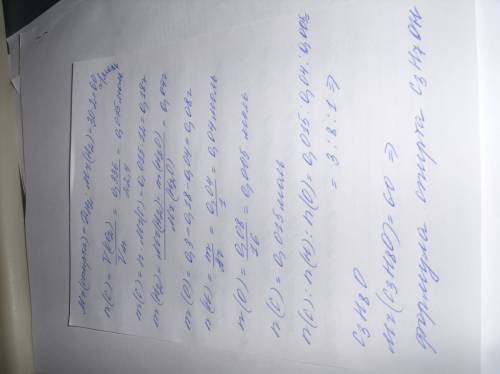 Mr(спирта) = DH₂ · Mr(H₂) = 30·2 = 60 г/моль
n(C) = V(CO₂)/Vm = 0,336/22,4 = 0,015 моль
m(C) = n · Mr(C) = 0,015·12 = 0,18г
m(H₂) = Mr(H₂) · m(H₂O)/Mr(H₂O) = 0,04г
m(O) = 0,3 - 0,18 - 0,04 = 0,08г
n(H) = m/Ar = 0,04/1 = 0,04 моль
n(O) = 0,08/16 = 0,005 моль
n(C) = 0,015моль
n(C) : n(H) : n(O) = 0,015 : 0,04 : 0,005
= 3 : 8 : 1 ⇒
C₃H₈O
Mr(C₃H₈O) = 60 ⇒
формула спирта C₃H₇OH